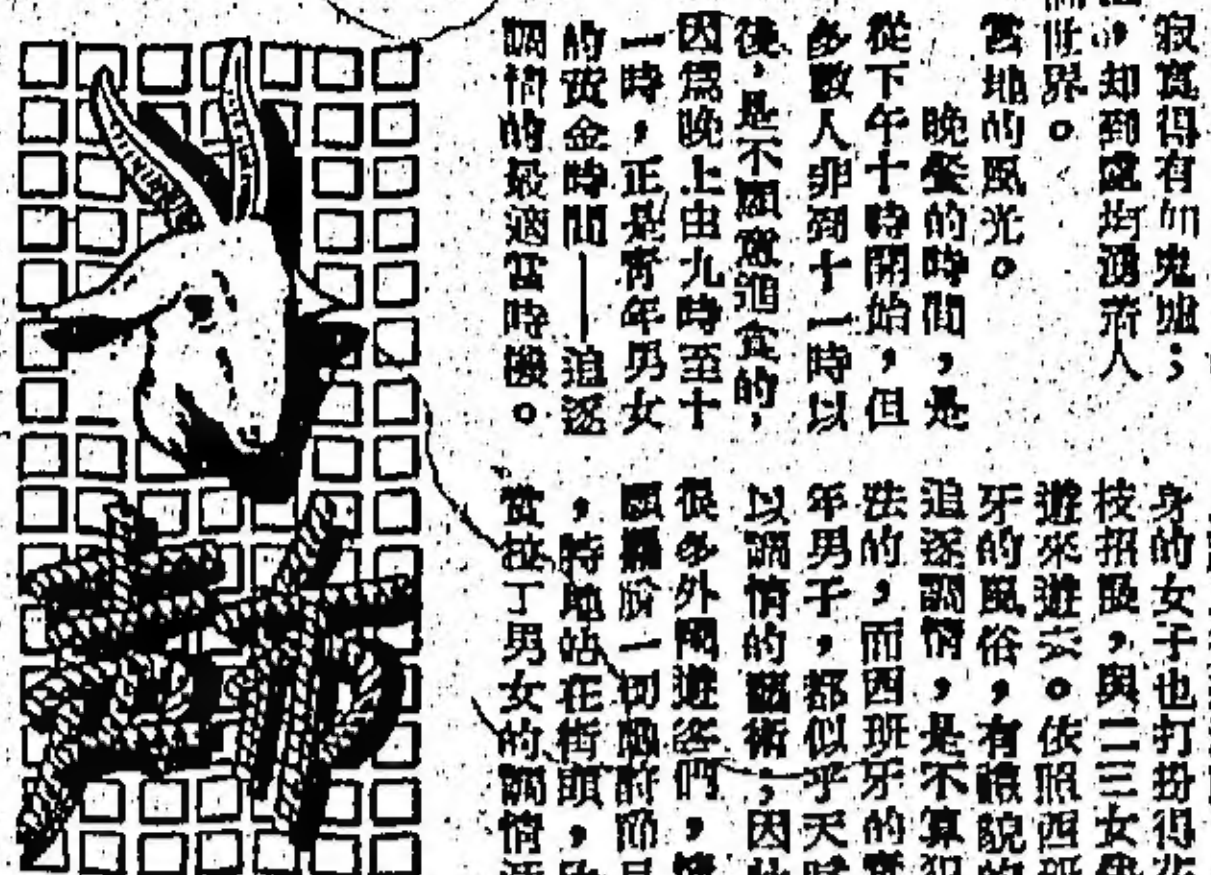 寂寞得有如鬼墟；
，却到處均湧着人
世界。
營地的風光。
晚餐的時間，是
從下午十時開始，但
多數人非到十一時以
後，是不願意進食的，
因爲晚上由九時至十
一時，正是靑年男女
的黃金時間——追逐
調情的最適當時機。
身的女子也打扮得花
枝招展，與二三女伴
遊來遊去。依照西班
牙的風俗，有禮貌的
追逐調情，是不算犯
法的，而西班牙的
年男子，都似乎天賦
以調情的藝術，因此
很多外國遊客們，
一切節目
，時地站在街頭，欣
賞拉丁男女的調情活